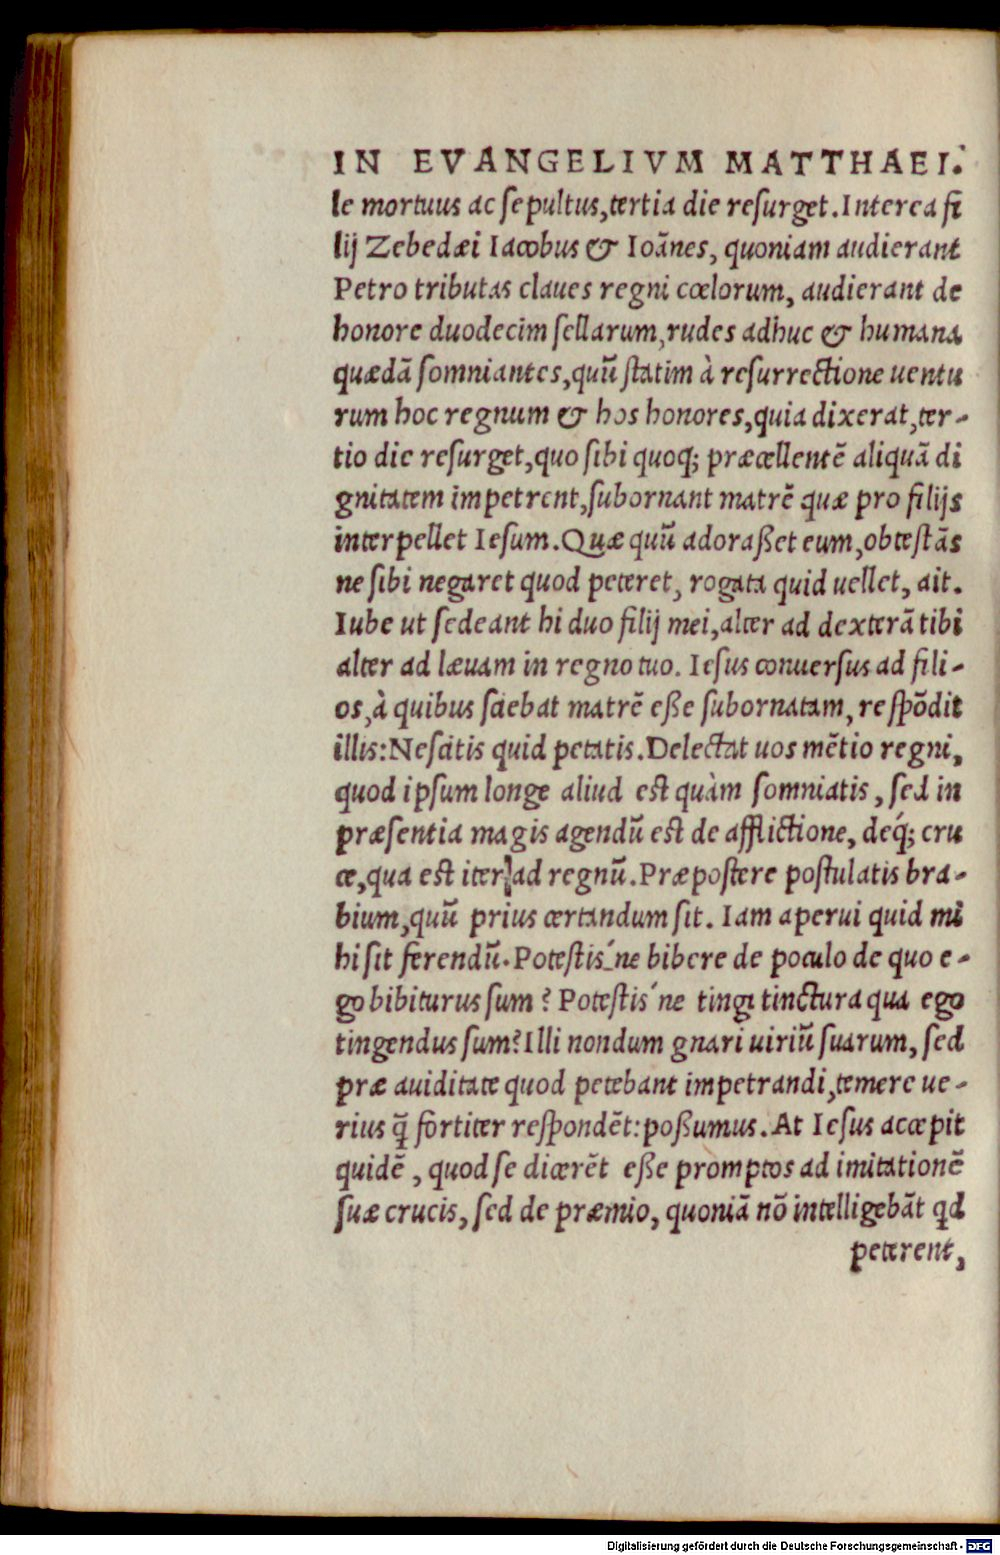 IN EVANGELIVM MATTHAEI.
le mortuus ac sepultus, tertia die resurget. Interea fi
lij Zebedæi Iacobus & Ioānes, quoniam audierant
Petro tributas claues regni cœlorum, audierant de
honore duodecim sellarum, rudes adhuc & humana
quædā somniantes, quū statim à resurrectione uentu
rum hoc regnum & hos honores, quia dixerat, ter-
tio die resurget, quo sibi quoq; præcellentē aliquā di
gnitatem impetrent, subornant matrē quæ pro filijs
interpellet Iesum. Quæ quū adoraßet eum, obtestās
ne sibi negaret quod peteret, rogata quid uellet, ait.
Iube ut sedeant hi duo filij mei, alter ad dexterā tibi
alter ad læuam in regno tuo. Iesus conuersus ad fili-
os, à quibus sciebat matrē eße subornatam, respōdit
illis: Nescitis quid petatis. Delectat uos mētio regni,
quod ipsum longe aliud est quàm somniatis, sed in
præsentia magis agendū est de afflictione, deq́; cru
ce, qua est iter ad regnū. Præpostere postulatis bra-
bium, quū prius certandum sit. Iam aperui quid mi
hi sit ferendū. Potestis´ne bibere de poculo de quo e-
go bibiturus sum? Potestis´ne tingi tinctura qua ego
tingendus sum? Illi nondum gnari uiriū suarum, sed
præ auiditate quod petebant impetrandi, temere ue-
rius q̄ fortiter respondēt: poßumus. At Iesus accepit
quidē, quod se dicerēt eße promptos ad imitationē
suæ crucis, sed de præmio, quoniā nō intelligebāt qd
peterent,
Digitalisierung gefördert durch die Deutsche Forschungsgemeinschaft - DFG